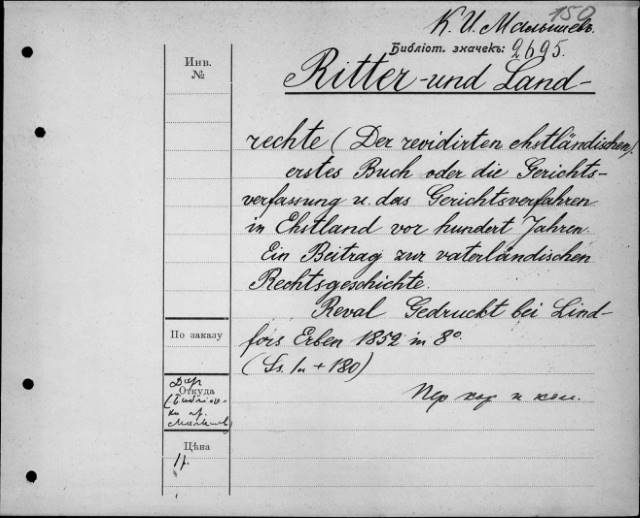 150
К. И. Малышевъ.
Библіот. значекъ: 2695.
Инв.
№
Ritter- und Land-
rechte (Der revidirten ehstländischen).
erstes Buch oder die Gerichts-
verfassung u. das Gerichtsverfahren
in Ehstland vor hundert Jahren.
Ein Beitrag zur vaterländischen
Rechtsgeschichte.
Reval Gedruckt bei Lind-
fors Erben 1852 in 8°
(Ss. 1 + 180)
По заказу
Дар
Откуда
Пер кор и кож.
Цѣна
1р